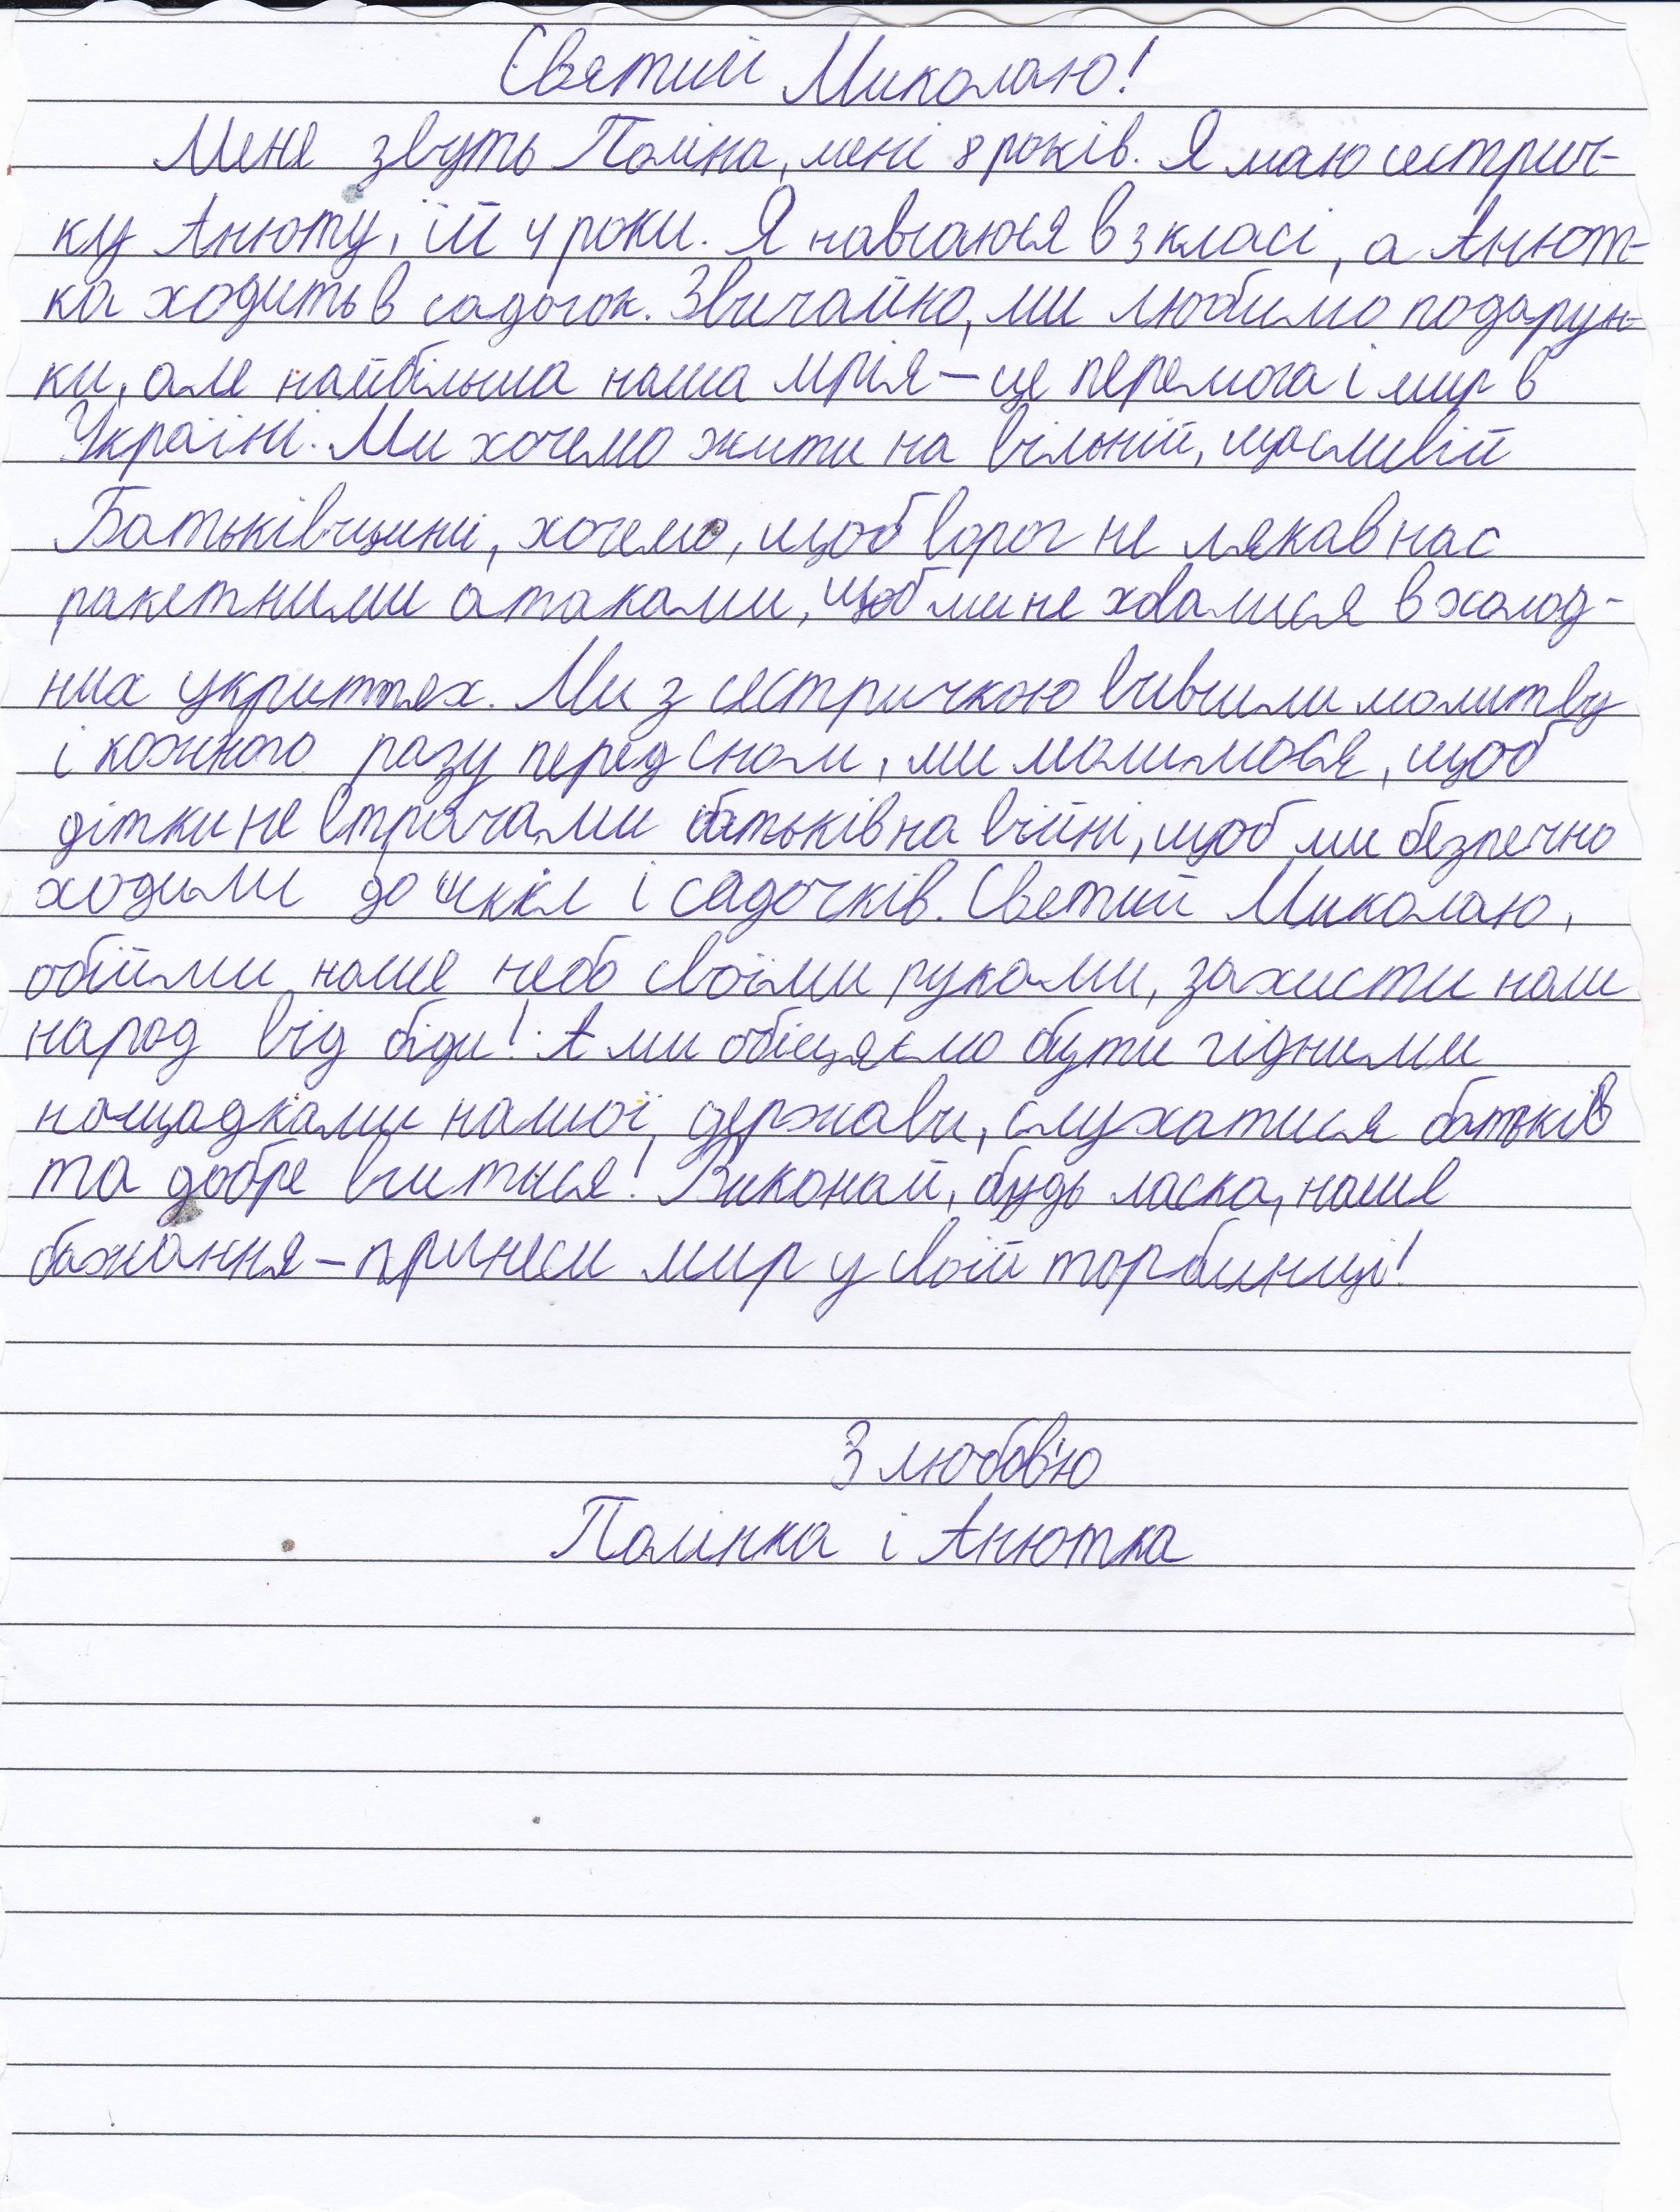 Святий Миколаю!
Мене звуть Поліна, мені 8 років. Я маю сестрич-
ку Анюту, їй 4 роки. Я навчаюся в 3 класі, а Анют-
ка ходить в садочок. Звичайно, ми любимо подарун-
ки, але найбільша наша мрія – це перемога і мир в
Україні. Ми хочемо жити на вільній, щасливій
Батьківщині, хочемо, щоб ворог не лякав нас
ракетними атаками, щоб ми не ховалися в холод-
них укриттях. Ми з сестричкою вивчили молитву
і кожного разу перед сном, ми молимося, щоб
дітки не втрачали батьків на війні, щоб ми безпечно
ходили до шкіл і садочків. Святий Миколаю,
обійми наше небо своїми руками, захисти наш
народ від біди! А ми обіцяємо бути гідними
нащадками нашої держави, слухатися батьків
та добре вчитися! Виконай, будь ласка, наше
бажання – принеси мир у своїй торбинці!
З любов'ю
Полінка і Анютка